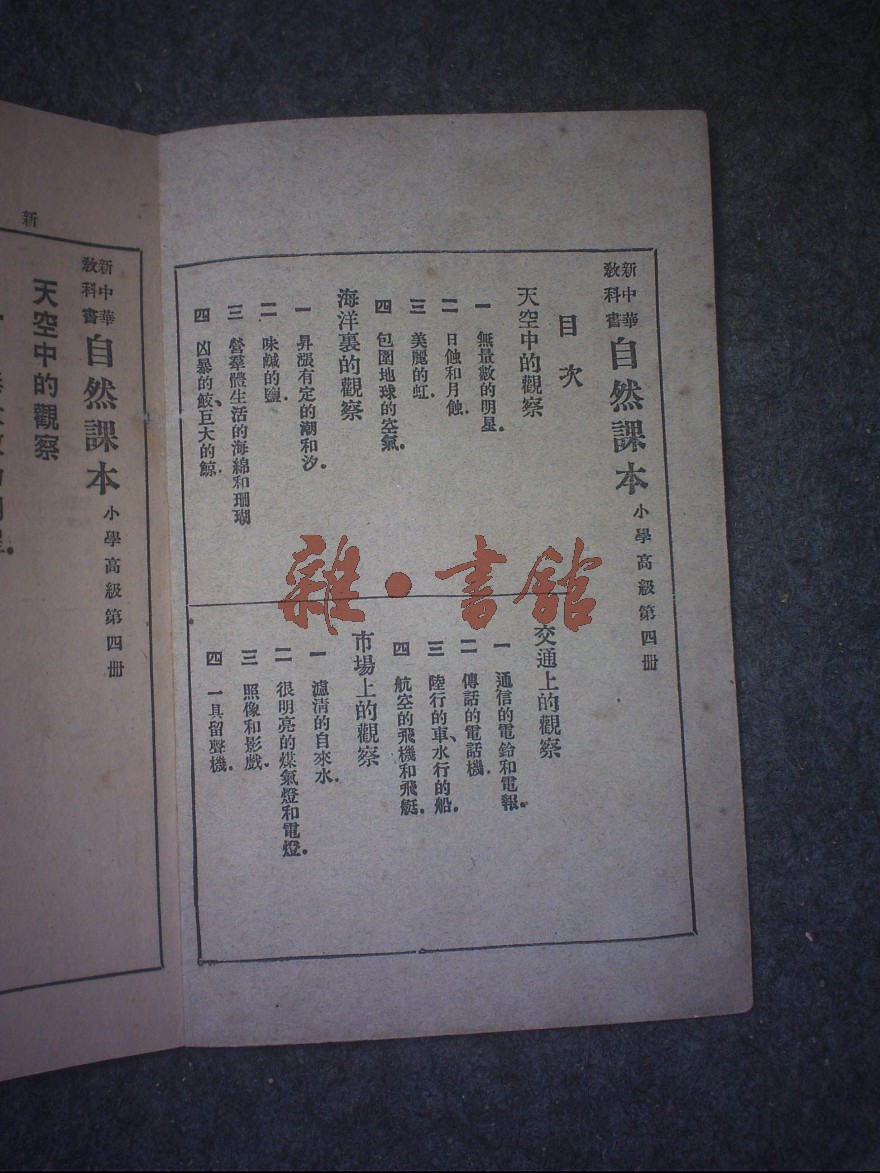 新中華
教科書
自然課本
小學高級第四冊
目次
天空中的觀察
一 無量數的明星.
二 日蝕和月蝕.
三 美麗的虹.
四 包圍地球的空氣.
海洋裏的觀察
一 昇漲有定的潮和汐.
二 味鹹的鹽.
三 營羣體生活的海綿和珊瑚
四 凶暴的鮫、巨大的鯨.
交通上的觀察
一 通信的電鈴和電報.
二 傳話的電話機.
三 陸行的車、水行的船.
四 航空的飛機和飛艇.
市場上的觀察
一 濾清的自來水.
二 很明亮的煤氣燈和電燈.
三 照像和影戲.
四 一具留聲機.
雜·書館
新
新中華
教科書
自然課本
小學高級第四冊
天空中的觀察